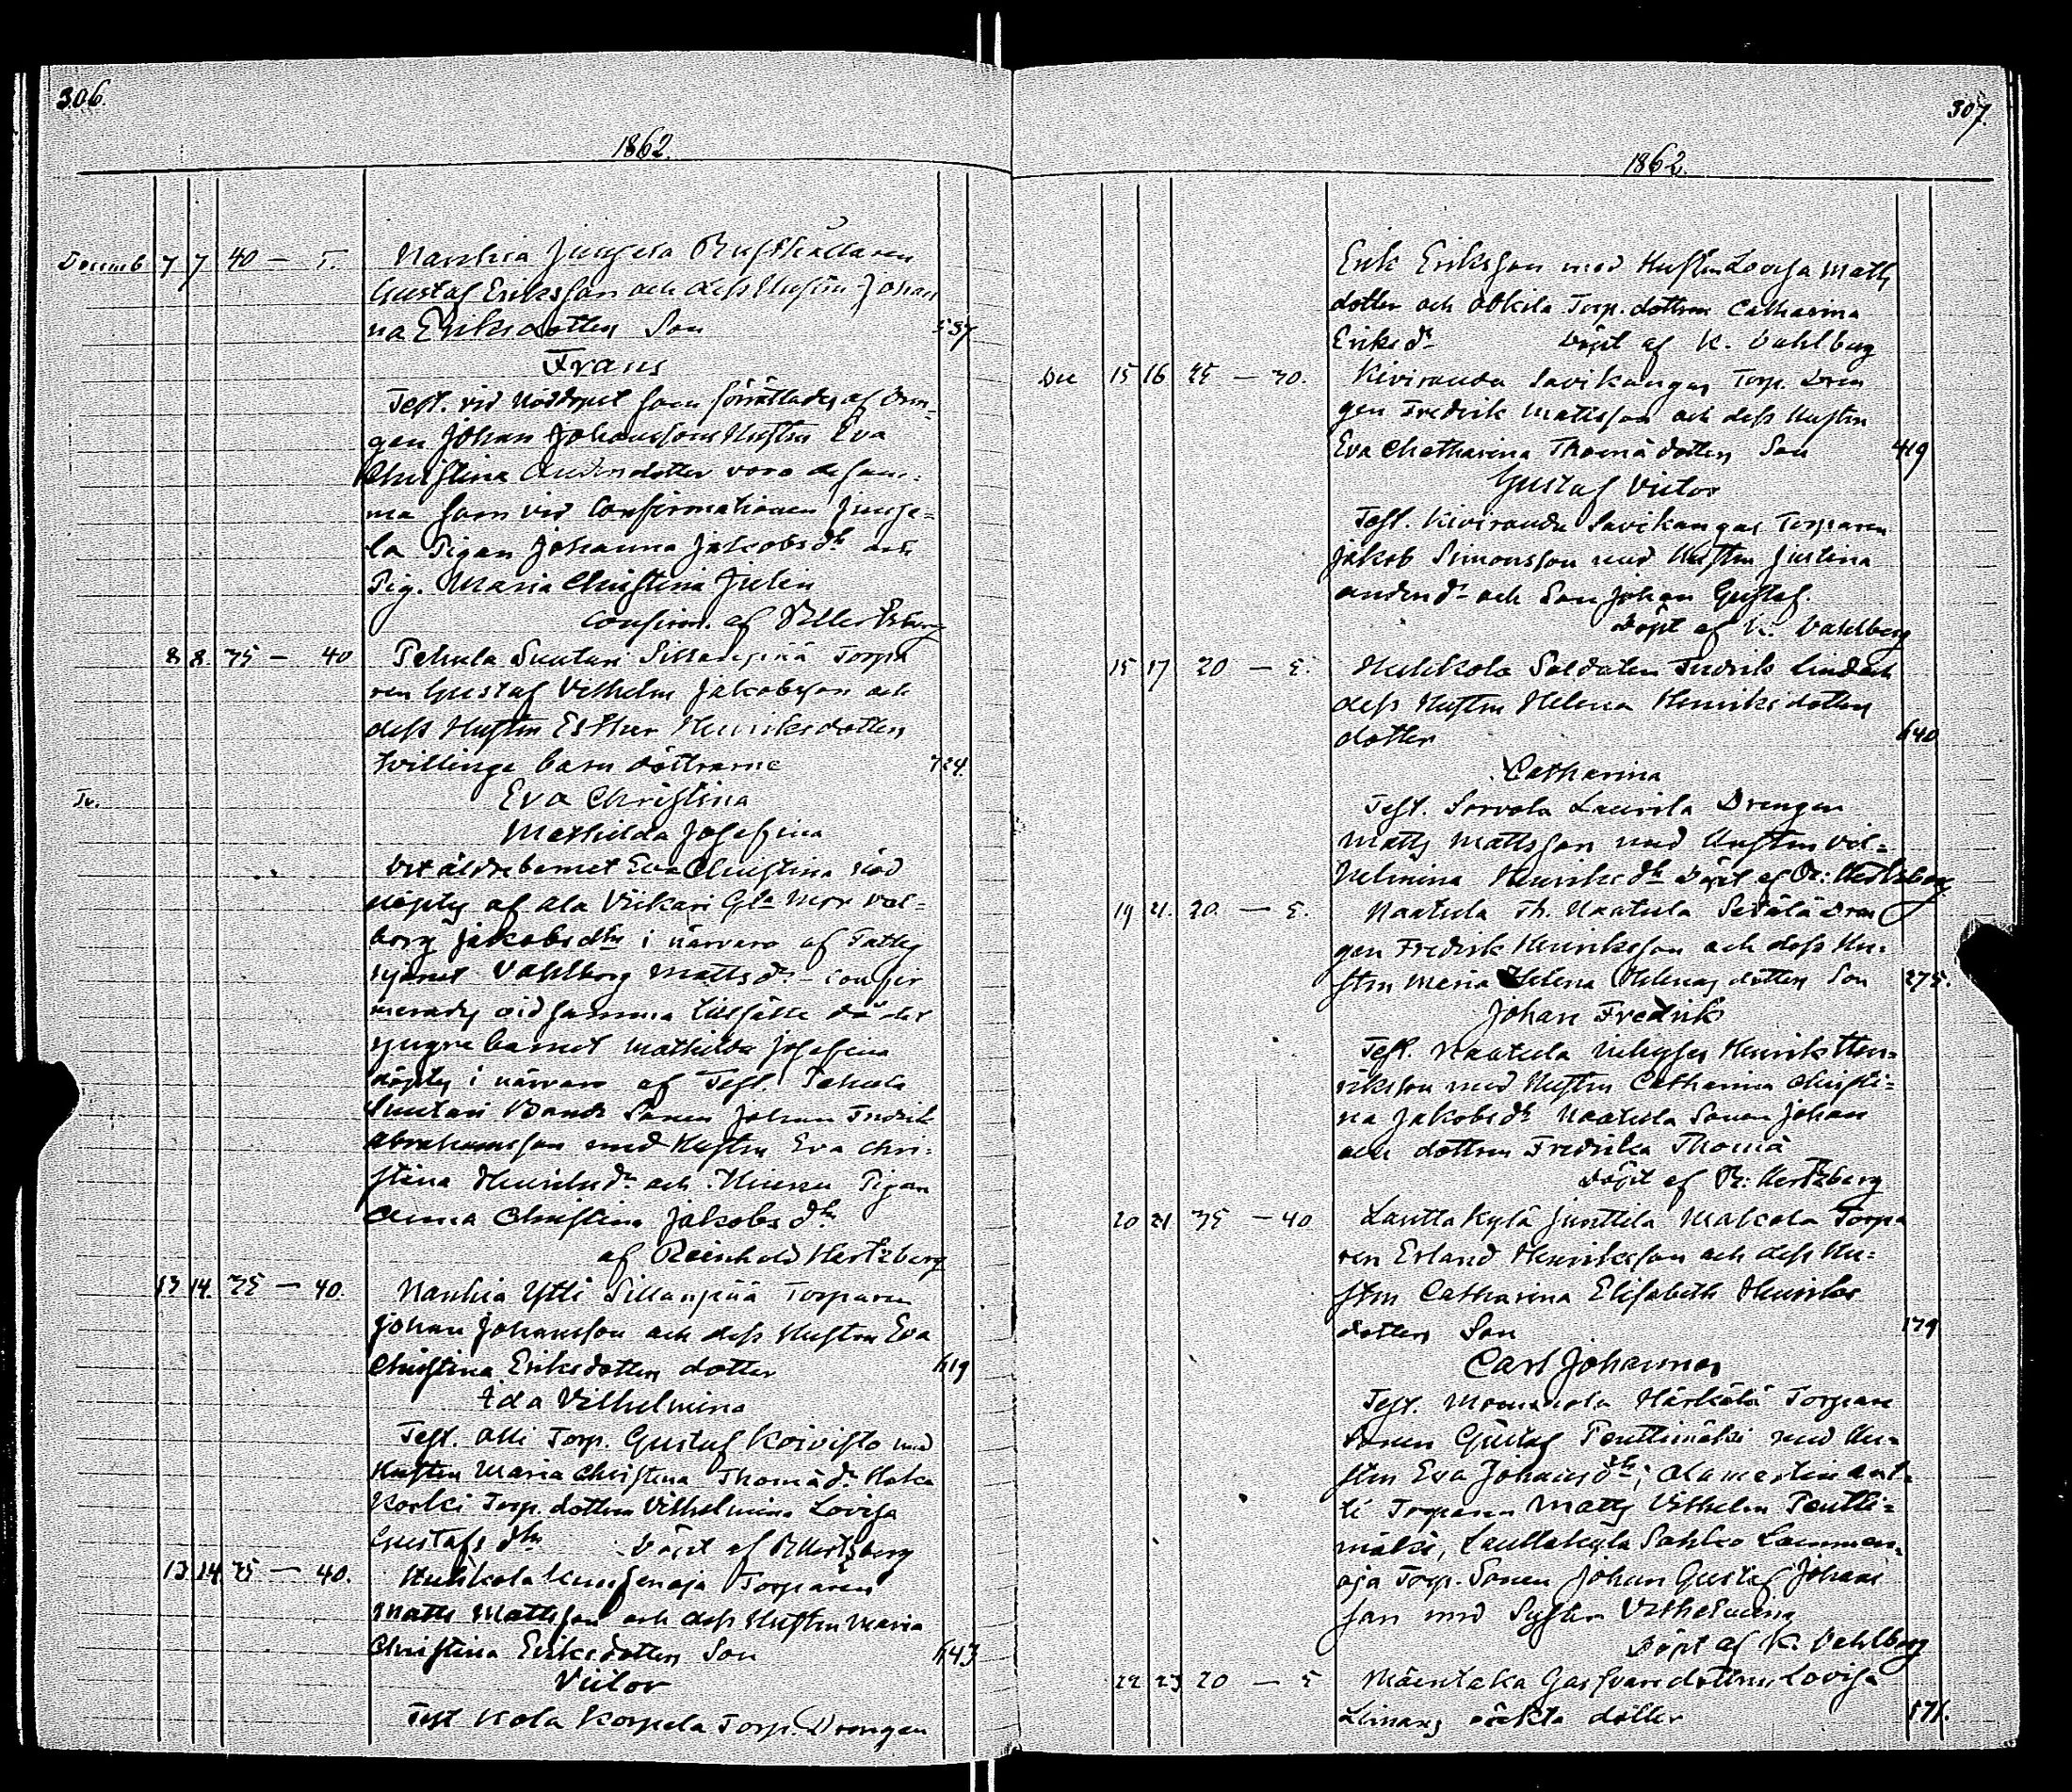 306.
1862.
Decemb 7 7 40 — 5. Nanhia Jungela Rusthållaren
Gustaf Eriksson och dess Hustru Johan
na Eriksdotters Son 537
Frans
Test. vid Nöddopet som förrättades af Dren=
gen Johan Johanssons Hustru Eva
Christina Andersdotter voro de sam=
ma som vid Confirmationen Junge=
la Pigan Johanna Jakobsdr och
Pig. Maria Christina Julin
Confirm. af RHertzberg
8 8. 35 — 40 Pehula Suutari Sillanpää Torpa
ren Gustaf Vilhelm Jakobsson och
dess Hustru Esther Henriksdotters
tvillinge barn döttrarne 724.
Tv. Eva Christina
Mathilda Josefina
Det äldre barnet Eva Christina nöd
döptes af Ala Viikari Gla Mor Val=
borg Jakobsdtr i närvaro af
hjonet Vahlborg Mattsdr confir
merades vid samma tillfälle då det
yngre barnet Mathilda Josefina
döptes i närvaro af Test. Pehula
Suutari Bonde Sonen Johan Fredrik
Abrahamsson med Hustru Eva Chri=
stina Henriksdr och Pigan
Anna Christina Jakobsdr
af Reinhold Hertzberg
13 14. 35 — 40. Nanhia Ytti Sillanpää Torparen
Johan Johansson och dess Hustru Eva
Christina Eriksdotters dotter 619
Ida Vilhelmina
Test. Alli Torp. Gustaf Koivisto med
Hustru Maria Christina Thomädr Haka
Koski Torp. dottren Vilhelmina Lovisa
Gustafsdtr Döpt af RHertzberg
13 14 35 — 40. Huhkola Torparen
Matts Mattsson och dess Hustru Maria
Christina Eriksdotters Son 643
Victor
Test Kola Korpela Torp. Drengen
307.
1862.
Erik Eriksson med Hustru Lovisa Matts
dotter och Torp. dottren Catharina
Eriksdr Döpt af K. Vahlberg
Dec 15 16 25 — 30. Kiviranda Savikangas Torp. Dren
gen Fredrik Mattsson och dess Hustru
Eva Chatharina Thomädotters Son 419
Gustaf Victor
Test. Kiviranda Savikangas Torparen
Jakob Simonsson med Hustru Justina
Andersdr och Son Johan Gustaf.
Döpt af K. Vahlberg
15 17 20 — 5. Huhkola Soldaten Fredrik Lind och
dess Hustru Helena Henriksdotters
dotter 640
Catharina
Test. Sorvola Laurila Drengen
Matts Mattsson med Hustru Vil=
helmina Henriksdtr Döpt af R: Hertzberg
19 21. 20. — 5. Naatula Th. Naatula Setälä Dren
gen Fredrik Henriksson och dess Hu=
stru Maria Helena Helenas dotters Son 275.
Johan Fredrik
Test. Naatula Inhyses Henrik Hen=
riksson med Hustru Catharina Christi=
na Jakobsdr Naatula Sonen Johan
och dottren Fredrika Thomä
Döpt af R: Hertzberg
20 21 35 — 40 Lauttakylä Junttila Makola Torpa
ren Erland Henriksson och dess Hu=
stru Catharina Elisabeth Henriks
dotters Son 179
Carl Johannes
Test. Härkälä Torpare
Sonen Gustaf Penttimäki med Hu=
stru Eva Johansdtr; Alamartin Ant=
ti Torparen Matts Vilhelm Pentti=
mäki, Lauttakylä Sahko Lammen=
oja Torp. Sonen Johan Gustaf Johans
son med Syster Vilhelmina
Döpt af K. Vahlberg
22 23 20 — 5 Mäentaka Gastvaredottren Lovisa
oäkta dotter 171.